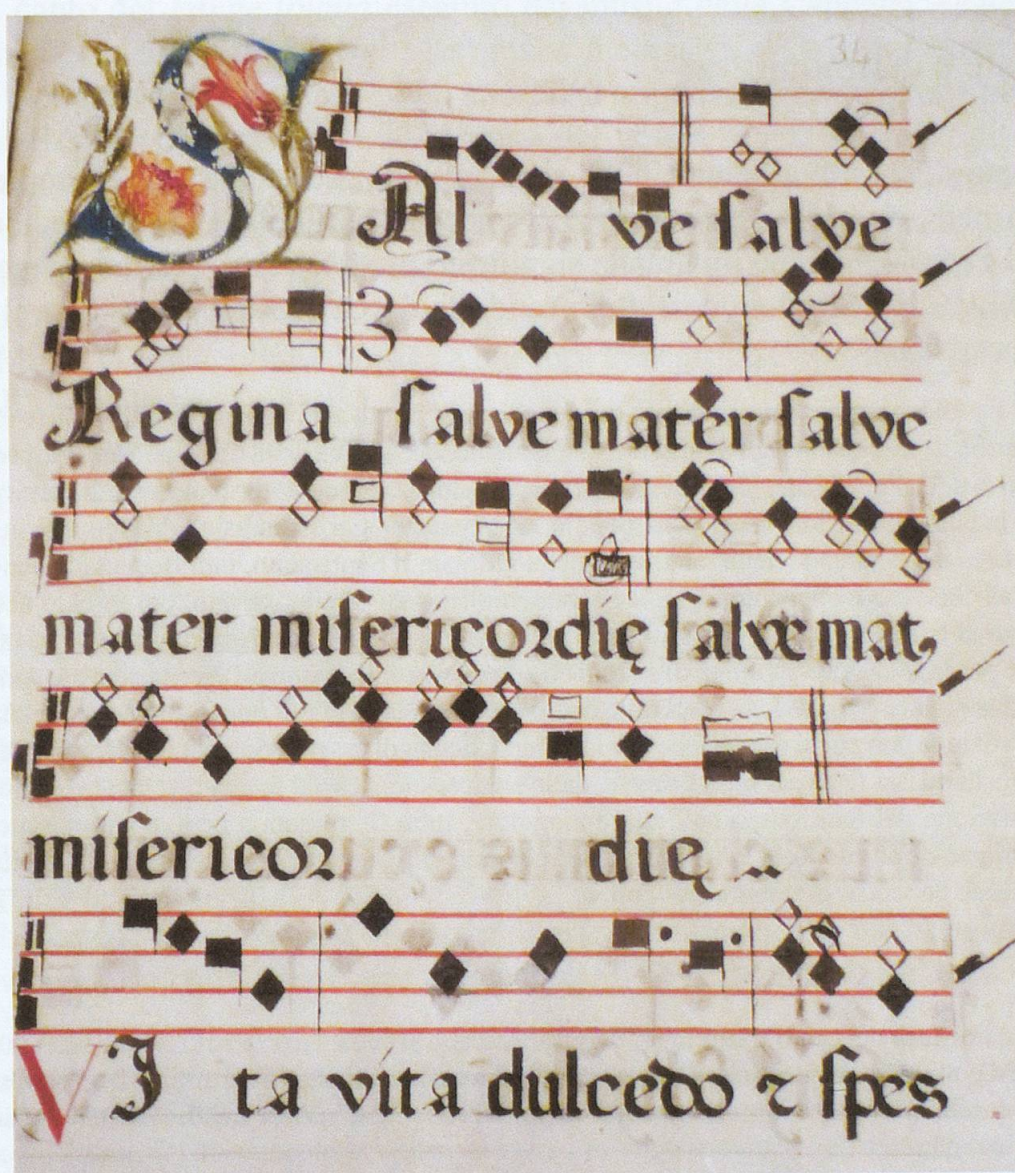 34
SAl ve ſalve
3
Regina ſalve mater ſalve
mater miſericoꝛdię ſalve mat,
miſericoꝛ dię ..
VI ta vita dulcedo ⁊ ſpes